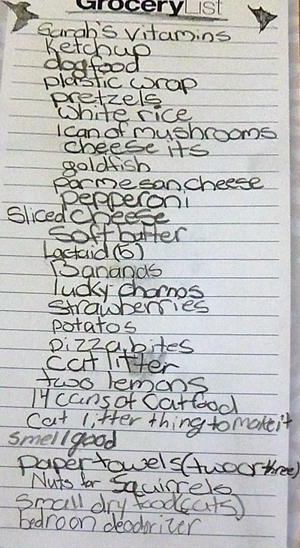 Grocery List
Sarah's vitamins
ketchup
dog food
plastic wrap
pretzels
white rice
1 can of mushrooms
cheese its
goldfish
parmesan, cheese
pepperoni
Sliced cheese
Soft butter
Lactaid (5)
Bananas
lucky charmos
strawberries
potatos
pizza bites
cat litter
two lemons
14 cans of Cat food
Cat litter thing to make it
smell good
paper towels (two or three)
Nuts for Squirrels
Small dry food (cats)
bedroon deodorizer